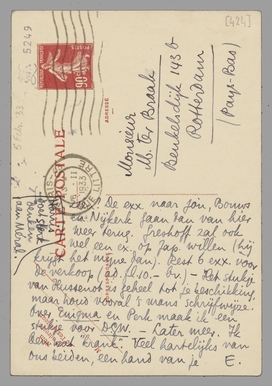 [424]
5249
90c
ADRESSE
CARTE POSTALE
Monsieur
M. ter Braak
Beukelsdijk 143 b
Rotterdam
(Pays-Bas)
1933
De exx. naar Jan, Bouws
en Nijkerk gaan dan van hier
weer terug. Greshoff zal ook
wel een ex. op jap. willen (hij
krijgt het mijne dan). Rest 6 exx. voor
de verkoop (ad. fl. 10.- bv.) – Het stukje
van is geheel tot je beschikking,
maar houd vooral 't mans schrijfwijze.
Over Enigma en Perk maak ik een
stukje voor DGW. – Later meer. Ik
ben nog "krank". Veel hartelijks van
ons beiden, een hand van je E.